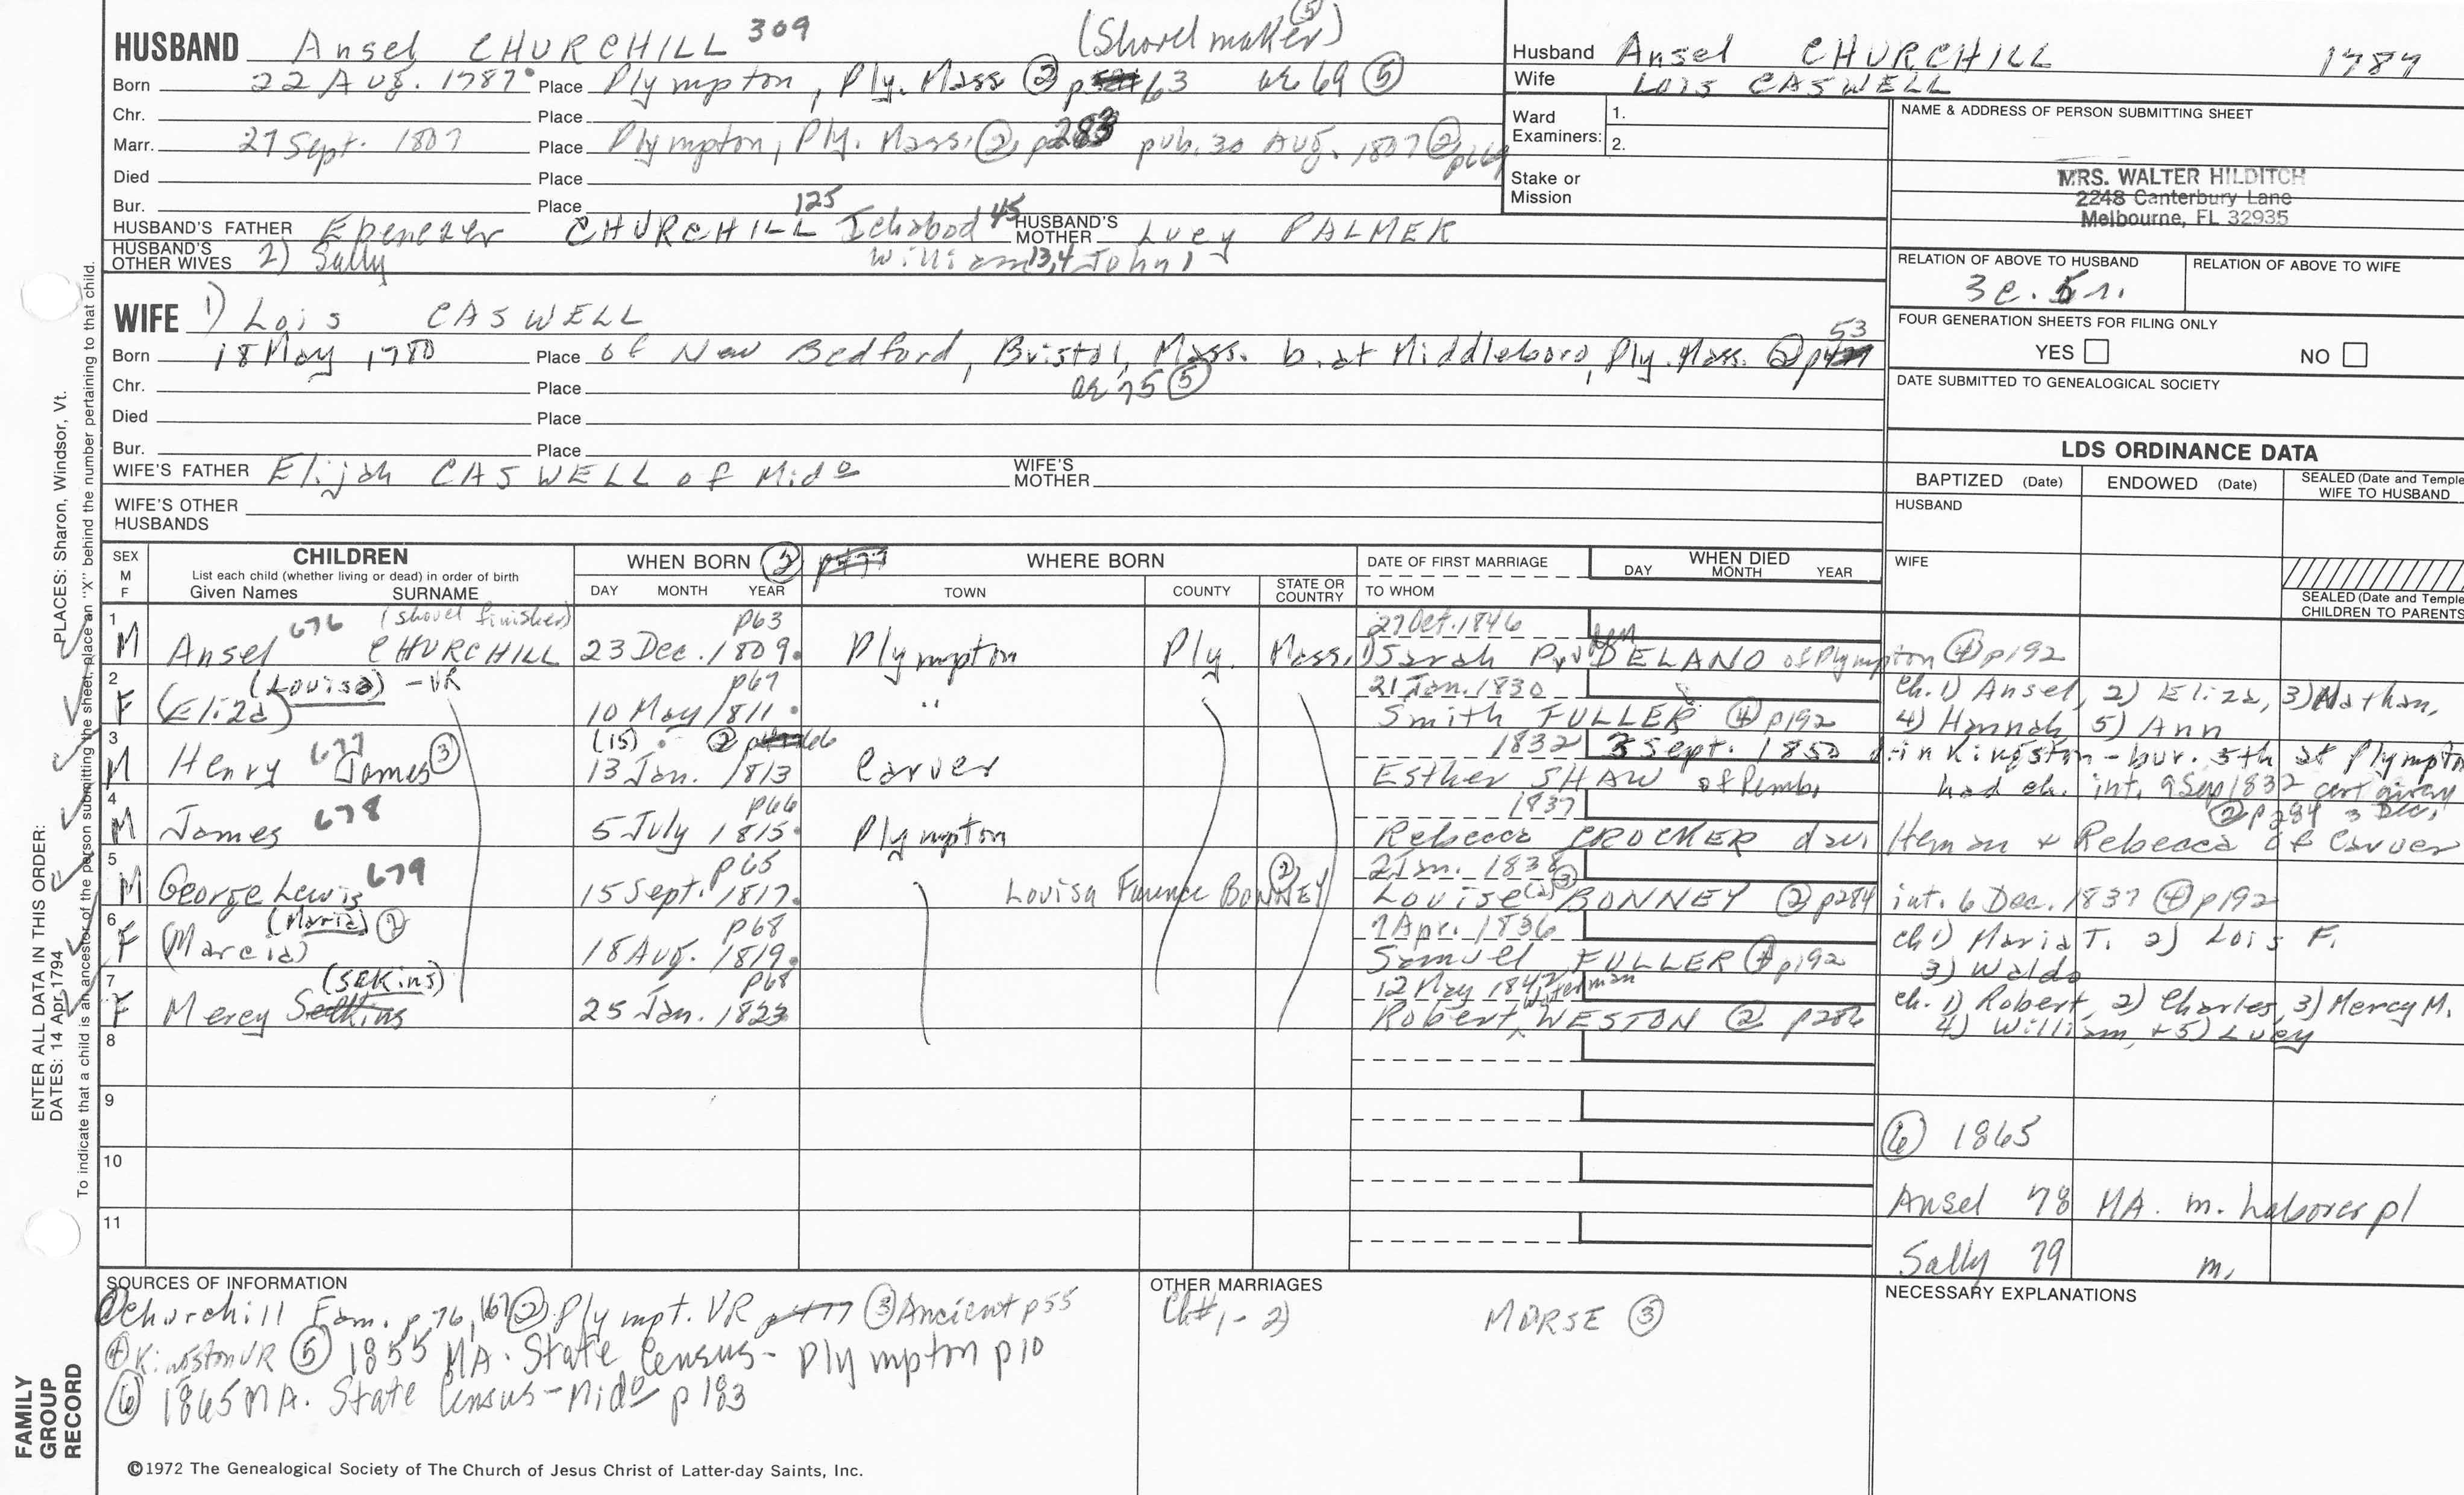 HUSBAND Ansel CHURCHILL 309 (Shovel maker) ⑤
Born 22 Aug. 1787 Place Plympton, Ply. Mass ② p63 ae 69 ⑤
Chr. Place
Marr. 27 Sept. 1807 Place Plympton, Ply. Mass. ② p283 pub. 30 Aug. 1807 ②
Died Place
Bur. Place
HUSBAND'S FATHER Ebenezer CHURCHILL 125 Ichabod 45 HUSBAND'S MOTHER Lucy PALMER
HUSBAND'S OTHER WIVES 2) Sally William 13,4 John 1
Husband Ansel CHURCHILL 1787
Wife Lois CASWELL
Ward Examiners: 1.
2.
Stake or Mission
NAME & ADDRESS OF PERSON SUBMITTING SHEET
MRS. WALTER HILDITCH
2248 Canterbury Lane
Melbourne, FL 32935
RELATION OF ABOVE TO HUSBAND RELATION OF ABOVE TO WIFE
3c. 5r.
FOUR GENERATION SHEETS FOR FILING ONLY
YES NO
DATE SUBMITTED TO GENEALOGICAL SOCIETY
WIFE 1) Lois CASWELL
Born 18 May 1780 Place of New Bedford, Bristol, Mass. b. at Middleboro, Ply. Mass. ② p 53
Chr. Place ae 75 ⑤
Died Place
Bur. Place
WIFE'S FATHER Elijah CASWELL of Mido WIFE'S MOTHER
WIFE'S OTHER HUSBANDS
LDS ORDINANCE DATA
BAPTIZED (Date) ENDOWED (Date) SEALED (Date and Temple) WIFE TO HUSBAND
HUSBAND
WIFE
SEALED (Date and Temple) CHILDREN TO PARENTS
SEX M F CHILDREN List each child (whether living or dead) in order of birth Given Names SURNAME
WHEN BORN ② DAY MONTH YEAR
WHERE BORN TOWN COUNTY STATE OR COUNTRY
DATE OF FIRST MARRIAGE TO WHOM
WHEN DIED DAY MONTH YEAR
1 (shovel finisher) p63 27 Oct. 1846
M Ansel 676 CHURCHILL 23 Dec. 1809 Plympton Ply. Mass. 1) Sarah DELANO of Plympton ④ p192
2 (Louisa) - VR p67 21 Jan. 1830 Ch. 1) Ansel, 2) Eliza, 3) Nathan,
F (Eliza) 10 May 1811 " Smith FULLER ④ p192 4) Hannah, 5) Ann
3 (15) ② p66 1832 3 Sept. 1850 d. in Kingston - bur. 5th at Plympton
M Henry 677 James ③ 13 Jan. 1813 Carver Esther SHAW of Pemb. had ch. int. 9 Sep 1832 cert given
4 p66 1837 ② p284 3 Dec.
M James 678 5 July 1815 Plympton Rebecca CROCKER dau. Heman + Rebecca of Carver
5 p65 2 Jan. 1838
M George Lewis 679 15 Sept. 1817 Louisa Faunce BONNEY ② Louise (a) ③ BONNEY ② p284 int. 6 Dec. 1837 ④ p192
6 (Maria) ② p68 7 Apr. 1836 ch 1) Maria T. 2) Lois F.
F (Marcia) 18 Aug. 1819 Samuel FULLER ④ p192 3) Waldo
7 (SEKins) p68 12 May 1842 Waterman ch. 1) Robert, 2) Charles, 3) Mercy M.
F Mercy 25 Jan. 1823 Robert WESTON ② p286 4) William, + 5) Lucy
8
9
⑥ 1865
10
Ansel 78 MA. m. Laborer pl
11
Sally 79 m.
SOURCES OF INFORMATION
① Churchill Fam. p 76, 167 ② Plympt. VR ③ Ancient p55
④ Kingston VR ⑤ 1855 MA. State Census - Plympton p10
⑥ 1865 MA. State Census - Mido p 183
OTHER MARRIAGES
Ch #1 - 2) MORSE ③
NECESSARY EXPLANATIONS
©1972 The Genealogical Society of The Church of Jesus Christ of Latter-day Saints, Inc.
FAMILY GROUP RECORD
ENTER ALL DATA IN THIS ORDER:
DATES: 14 Apr 1794 PLACES: Sharon, Windsor, Vt.
To indicate that a child is an ancestor of the person submitting the sheet, place an "X" behind the number pertaining to that child.